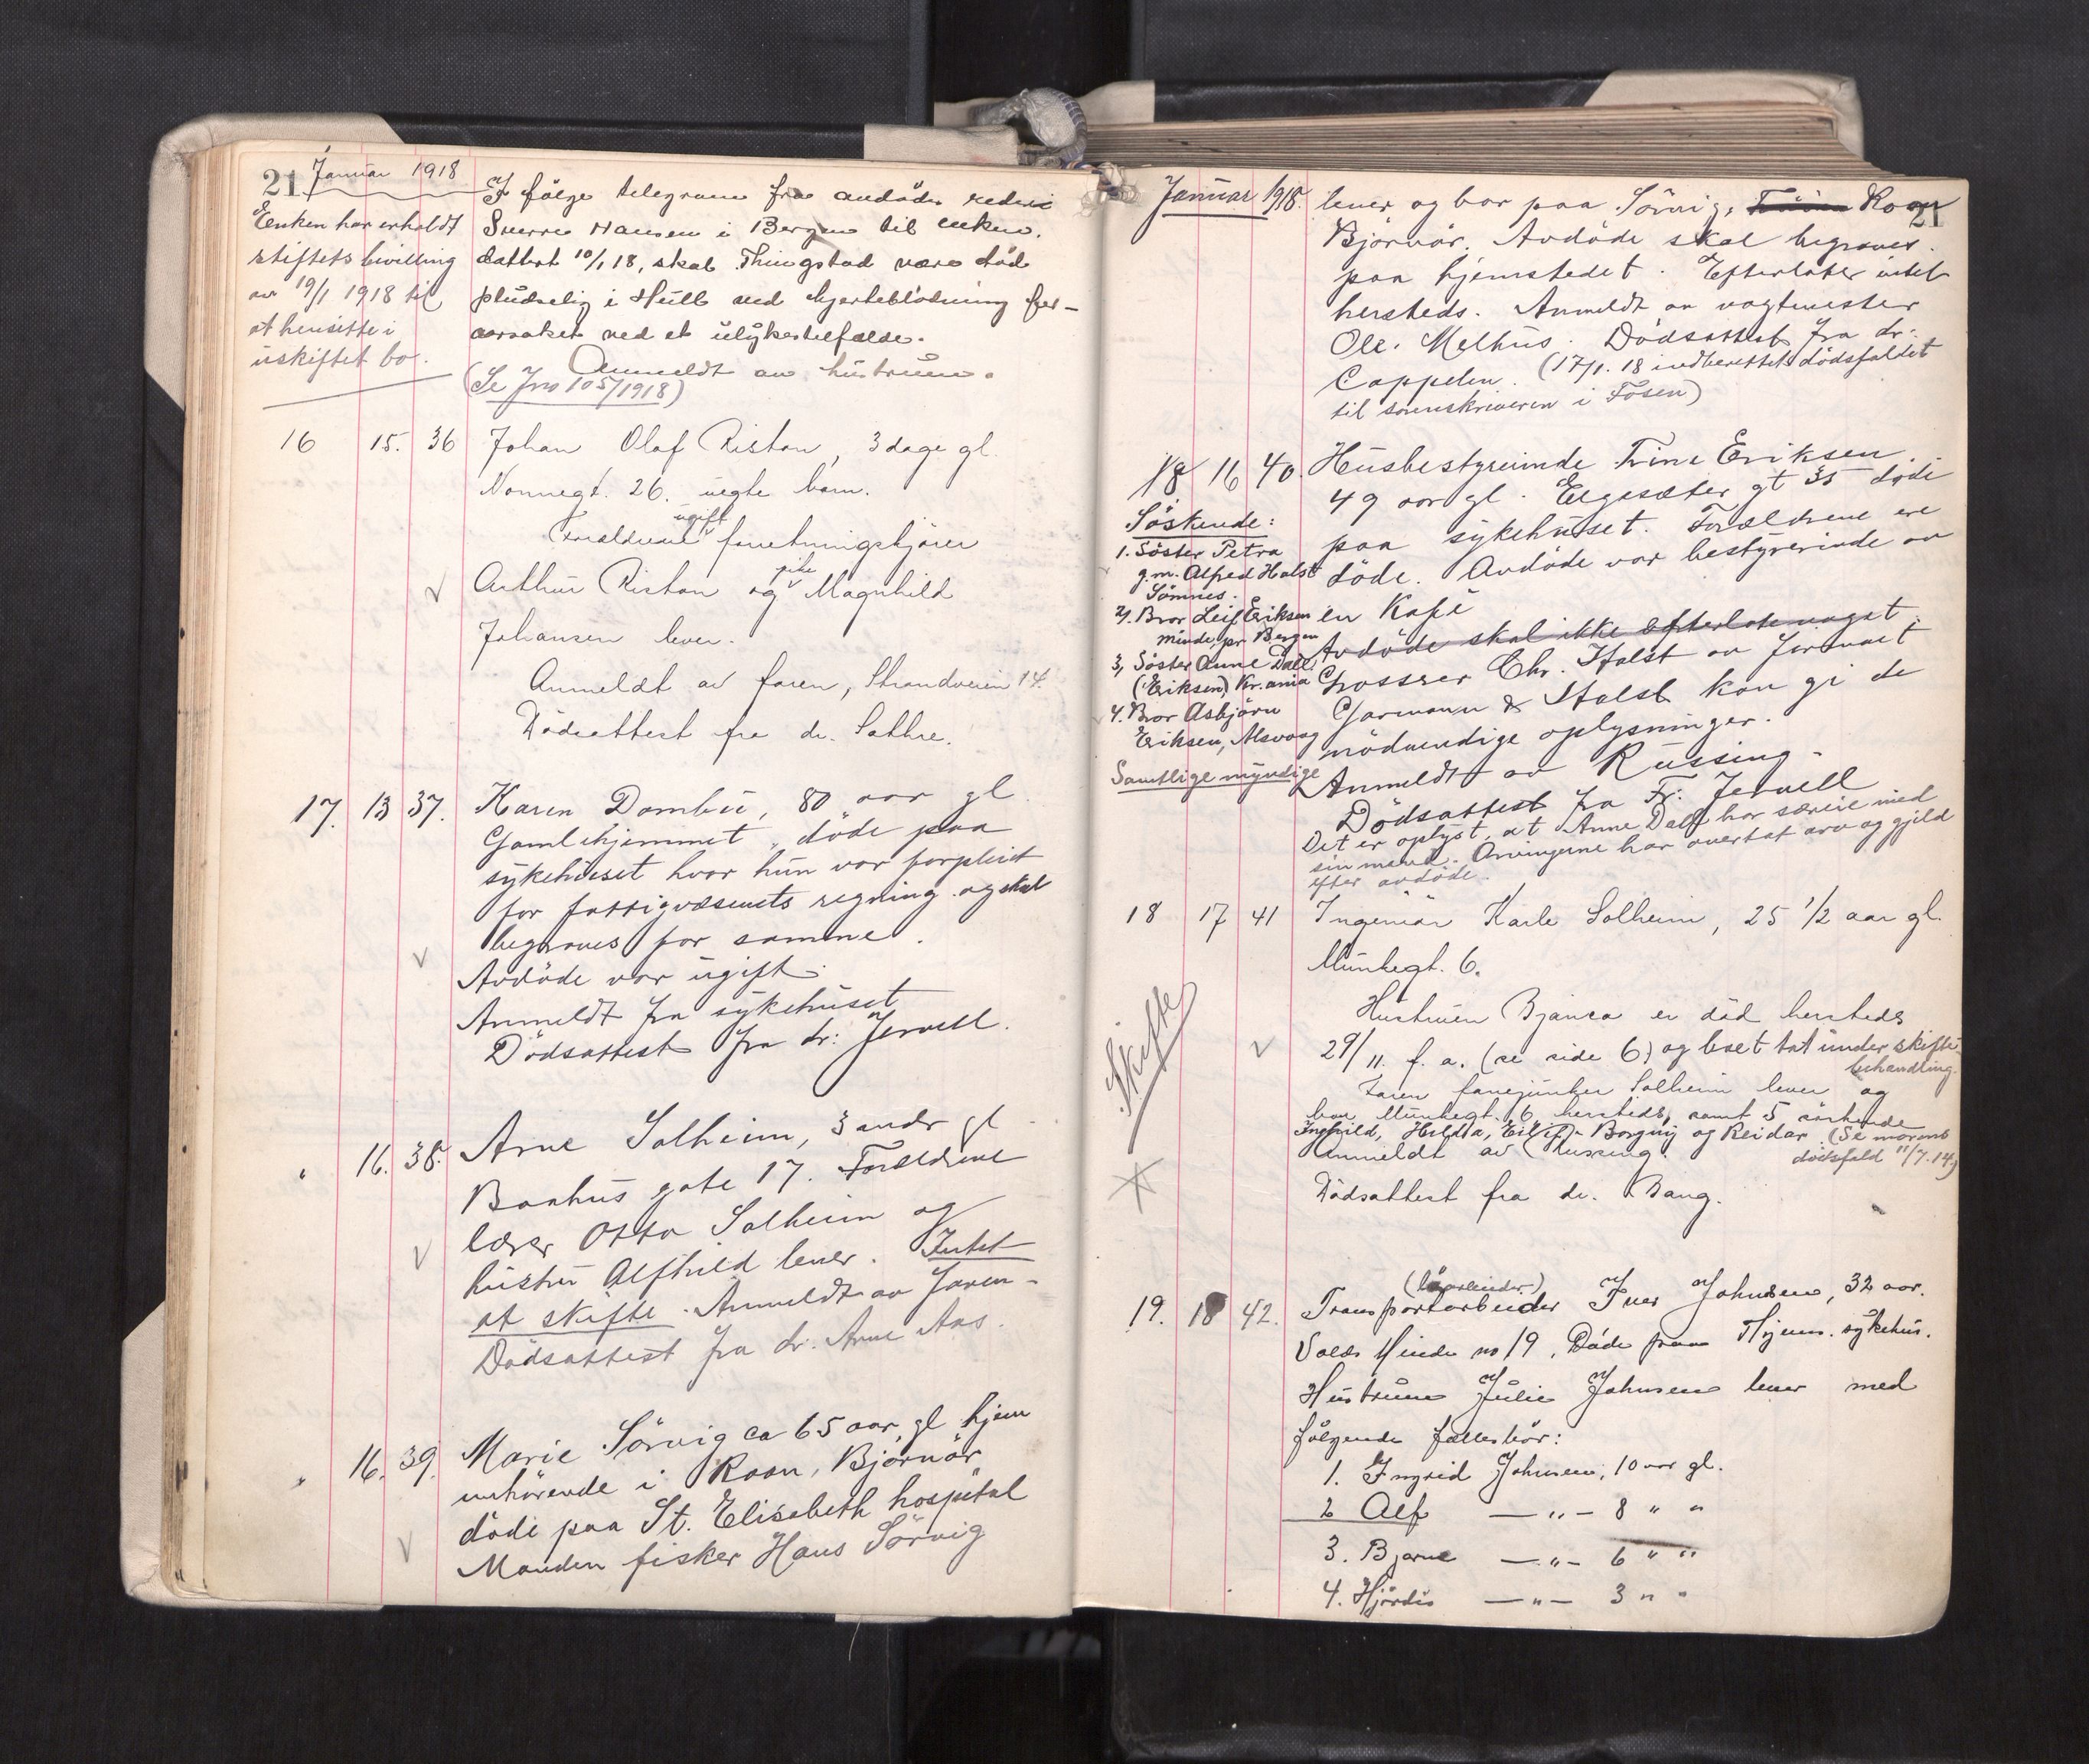 21 Januar 1918
Enken har erholdt
stiftets bevilling
av 19/1 1918 til
at hensitte i
uskiftet bo.
I følge telegram fra avdødes rederi
Sverre Hansen i Bergen til enken,
dattert 10/1 18, skal Thingstad være død
pludselig i Hull ved hjerteblødning for-
aarsaket ved et ulykkestilfælde.
Anmeldt av hustruen.
(Se Jno 105/1918)
16 15. 36 Johan Olaf Ristan, 3 dage gl.
Nonnegt. 26. uegte barn.
Forældrene ugift forretningskjører
Arthur Ristan og pike Magnhild
Johansen lever.
Anmeldt av faren, Strandveien 14.
Dödsattest fra dr. Sæthre.
17. 13 37. Karen Dombu, 80 aar gl
Gamlehjemmet, döde paa
sykehuset hvor hun var forpleiet
for fattigvæsenets regning og skal
begraves for samme.
Avdöde var ugift.
Anmeldt fra sykehuset
Dödsattest fra dr: Jervell.
" 16. 38. Arne Solheim, 3 mdr gl
Bakhus gate 17. Forældrene
lærer Otto Solheim og
hustru Alfhild lever. Intet
at skifte. Anmeldt av faren-
Dödsattest fra dr. Arne Aas.
" 16. 39. Marie Sörvig ca 65 aar, gl hjem
mehörende i Roan, Björnör
döde paa St. Elisabeth hospital
Manden fisker Hans Sörvig
Januar 1918. 21
lever og bor paa Sörvig, Roan
Björnör. Avdöde skal begraves
paa hjemstedet. Efterlater intet
hersteds. Anmeldt av vagtmester
Ole Melhus. Dödsattest fra dr.
Cappelen. (17/1. 18 indberettet dödsfaldet
til sorenskriveren i Fosen)
18 16 40. Husbestyrerinde Trine Eriksen
49 aar gl. Elgesæter gt 35 döde
paa sykehuset. Forældrene ere
döde. Avdöde var bestyrerinde av
en Kafe
Avdöde skal ikke efterlate noget.
Grosserer Chr. Holst av firmaet
Garmann & Holst kan gi de
nödvendige oplysninger.
Anmeldt av Russing-
Dödsattest fra Fr. Jervell
Det er oplyst, at Anne Dall har særeie med
sin mand. Arvingerne har overtat arv og gjeld
efter avdöde.
Söskende:
1. Söster Petra
g.m. Alfred Holst
Sömnes.
2. Bror Leif Eriksen
Minde, pr Bergen
3, Söster Anne Dall
(Eriksen) Kr.ania
4. Bror Asbjörn
Eriksen, Alsvaag
Samtlige myndige
18 17 41 Ingeniör Karle Solheim, 25 1/2 aar gl.
Munkegt. 6.
Hustruen Bjanca er død hersteds
29/11. f. a. (se side 6) og boet tat under skifte-
behandling.
Faren fanejunker Solheim lever og
bor Munkegt. 6 hersteds, samt 5 söskende
Inghild, Hilda, Borgny og Reidar. (Se morens
dödsfald 11/7.14)
Anmeldt av Russing.
Dödsattest fra dr. Bang.
Skifte
19. 18 42. Transportarbeider Iver Johnsen, 32 aar.
Volds Minde no 19, Døde paa Hjem. sykehus.
Hustruen Julie Johnsen lever med
følgende fællesbør:
1. Ingrid Johnsen, 10 aar gl.
2 Alf — " — 8 " "
3. Bjarne — " — 6 " "
4. Hjørdis — " — 3 " "